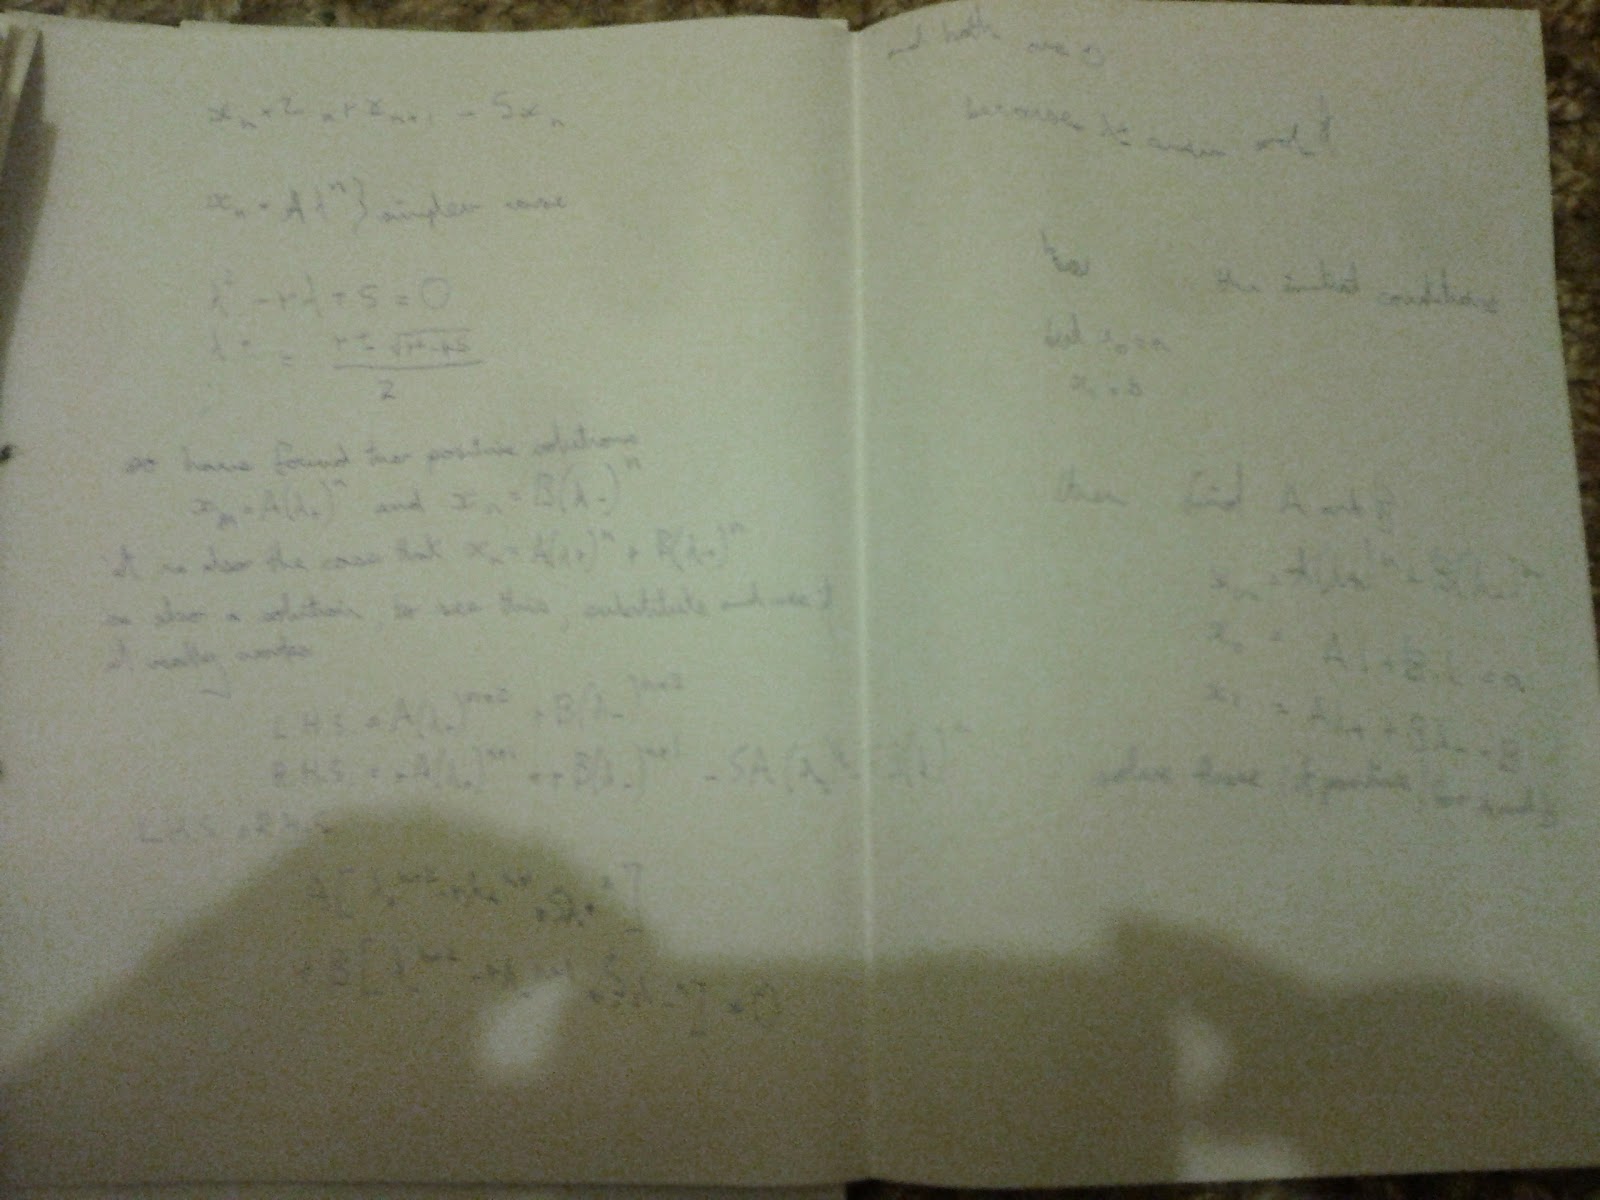 x_n+2 = r x_{n+1} - Sx_n
x_n = Aλ^n } simpler case
λ² - rλ + S = 0
λ± = r ± √r²-4S
2
so have found two positive solutions
x_n = A(λ+)^n and x_n = B(λ-)^n
it is also the case that x_n = A(λ+)^n + B(λ-)^n
is also a solution, to see this, substitute and see if
it really works
L.H.S = A(λ+)^{n+2} + B(λ-)^{n+2}
R.H.S = rA(λ+)^{n+1} + rB(λ-)^{n+1} - SA(λ+)^n
L.H.S = R.H.S
A[λ+^{n+2} - rλ+^{n+1} + Sλ+^n]
+ B[λ-^{n+2} - rλ-^{n+1} + Sλ-^n] = 0
and both are 0
because λ±
the initial conditions
x_0 = a
x_1 = b
then find A and B
x_n = A(λ+)^n + B(λ-)^n
x_0 = A.1 + B.1 = a
x_1 = Aλ+ + Bλ- = B
solve these